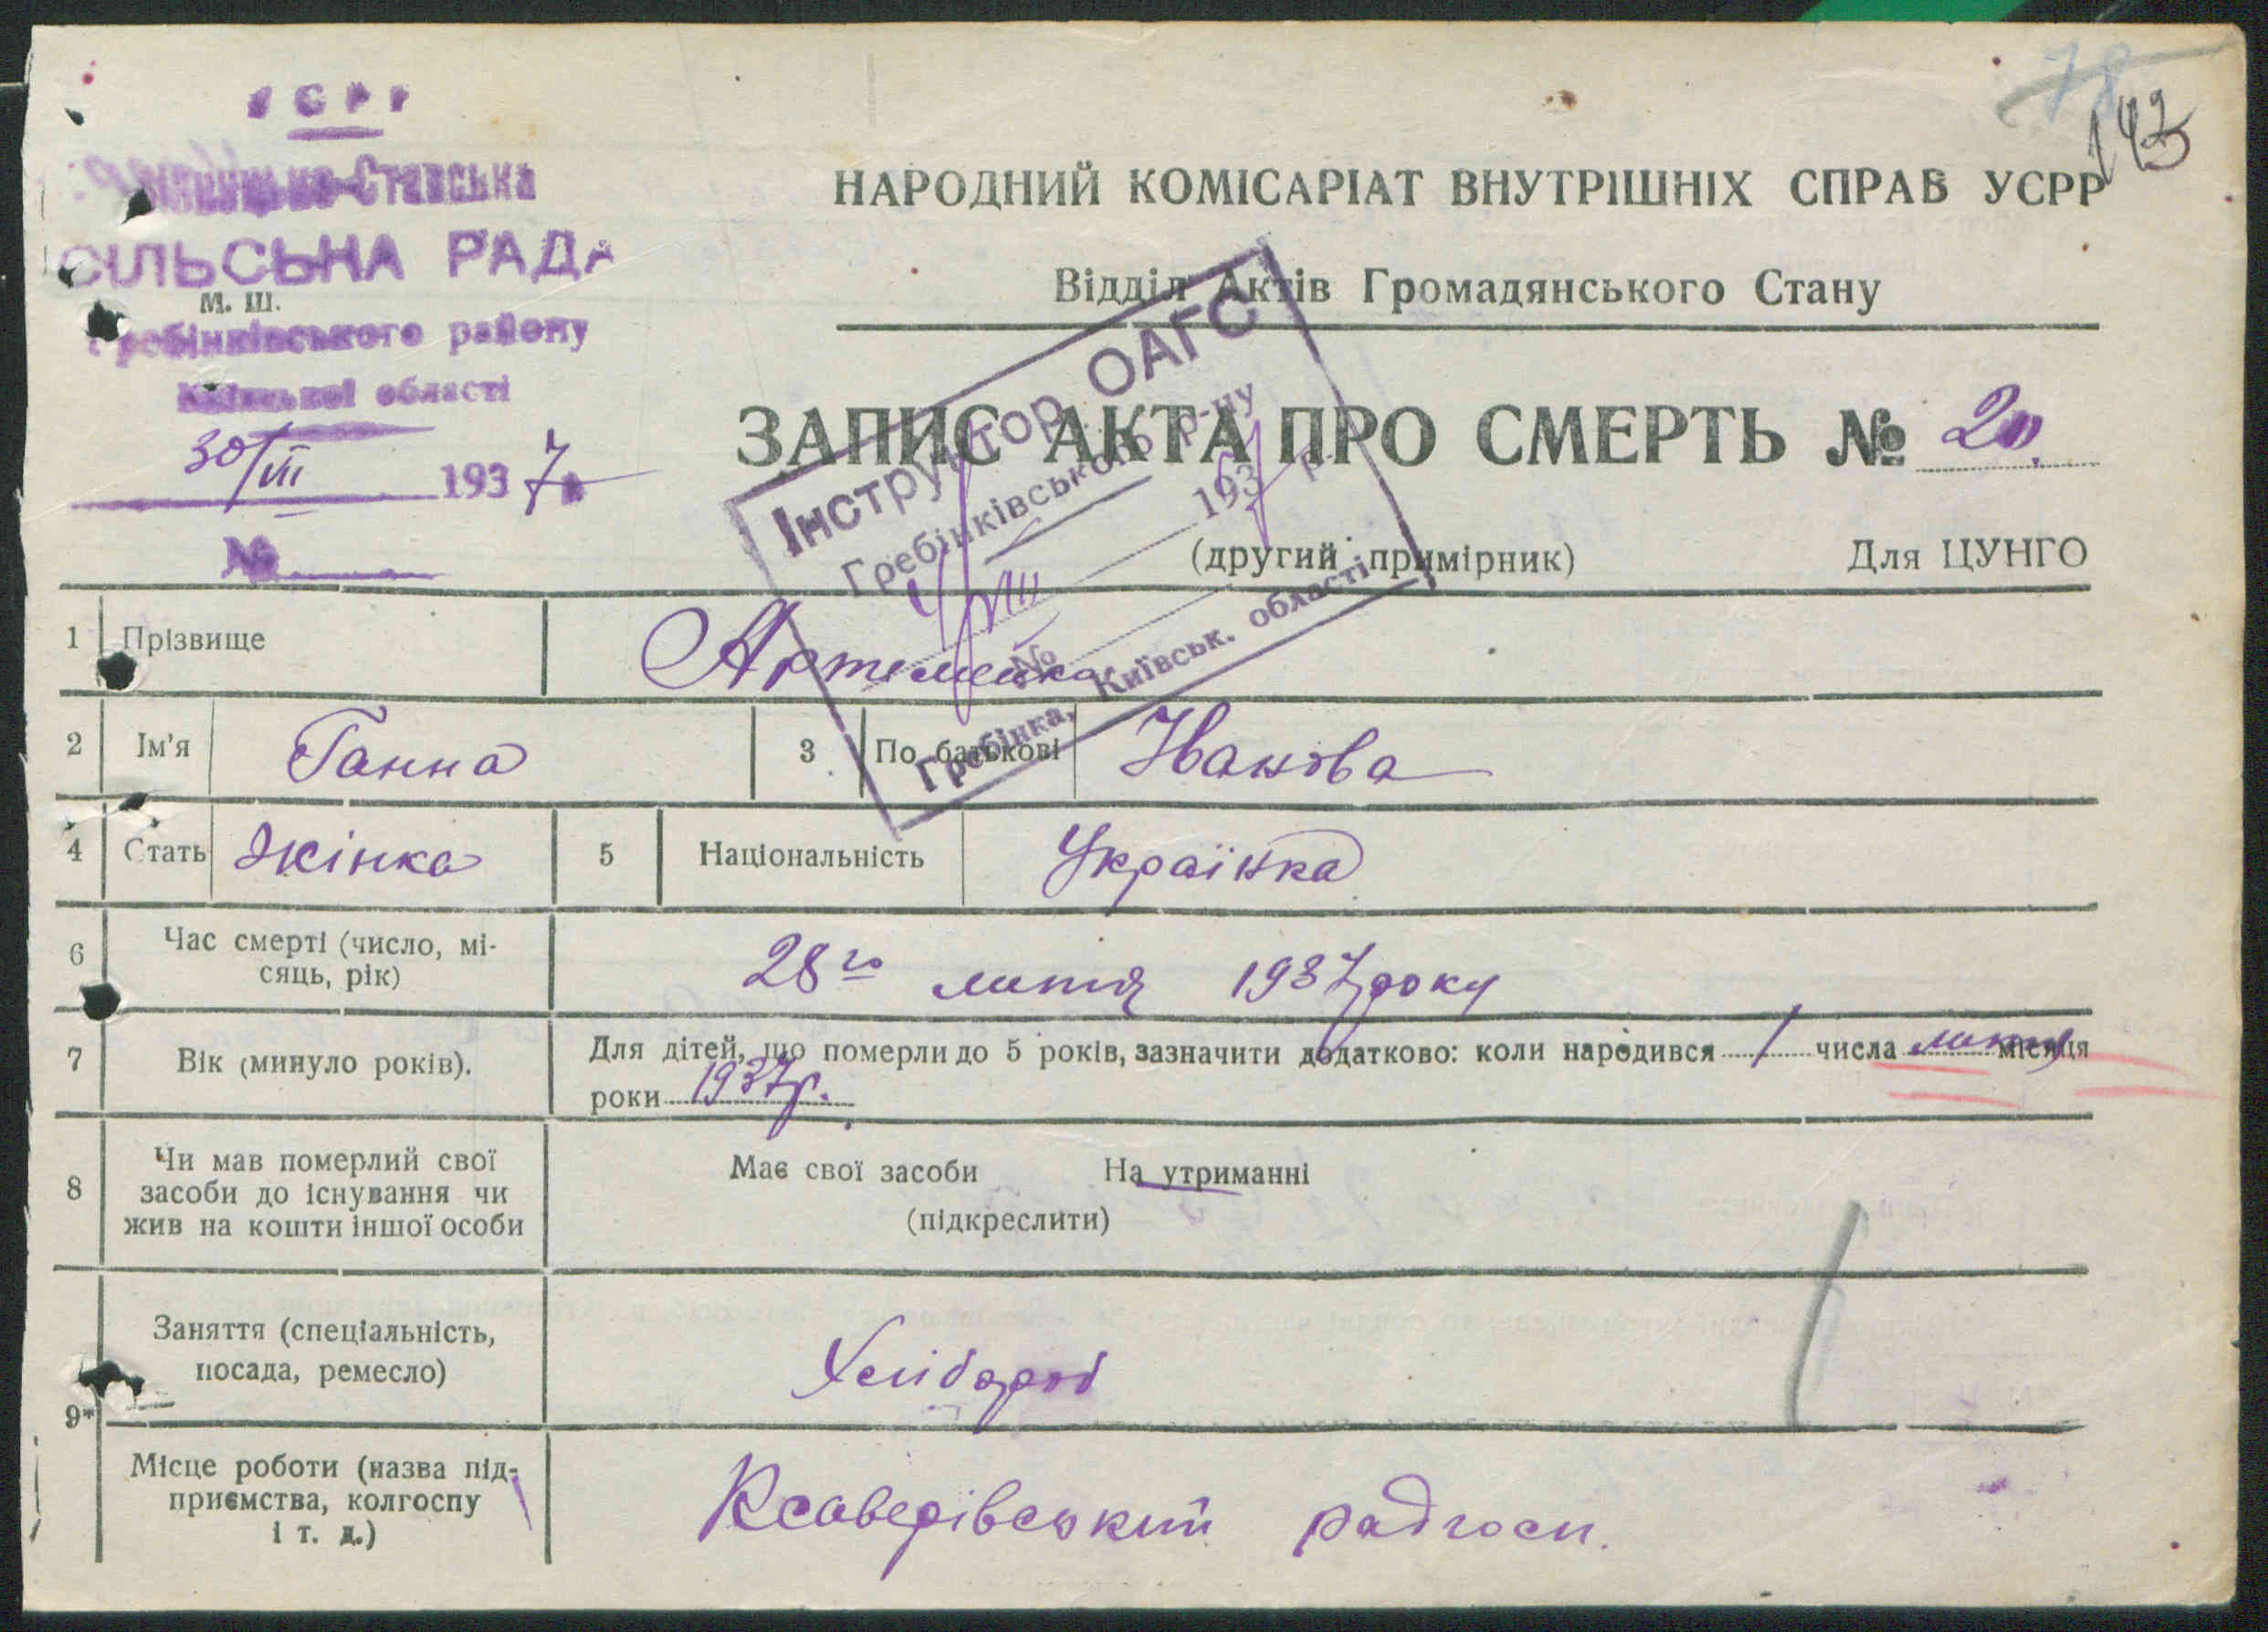 УСРР
78
143
Ставська
СІЛЬСЬНА РАДА
М. Ш.
Гребінківського району
Київської області
30/III 1937
№
НАРОДНИЙ КОМІСАРІАТ ВНУТРІШНІХ СПРАВ УСРР
Відділ Актів Громадянського Стану
ЗАПИС АКТА ПРО СМЕРТЬ № 20.
(другий примірник) Для ЦУНГО
Інструктор ОАГС
Гребінківського р-ну
4/VIII 1937 р.
№
Гребінка, Київськ. області
1 Прізвище Артеменко
2 Ім'я Ганна 3 По батькові Іванова
4 Стать Жінка 5 Національність Українка
6 Час смерті (число, мі-
сяць, рік) 28го лютя 1937 року
7 Вік (минуло років). Для дітей, що померли до 5 років, зазначити додатково: коли народився 1 числа лютя місяця
роки 1937р.
8 Чи мав померлий свої
засоби до існування чи
жив на кошти іншої особи
Має свої засоби На утриманні
(підкреслити)
9* Заняття (спеціальність,
посада, ремесло) Хлібороб
Місце роботи (назва під-
приємства, колгоспу
і т. д.) Ксаверівський радгосп.